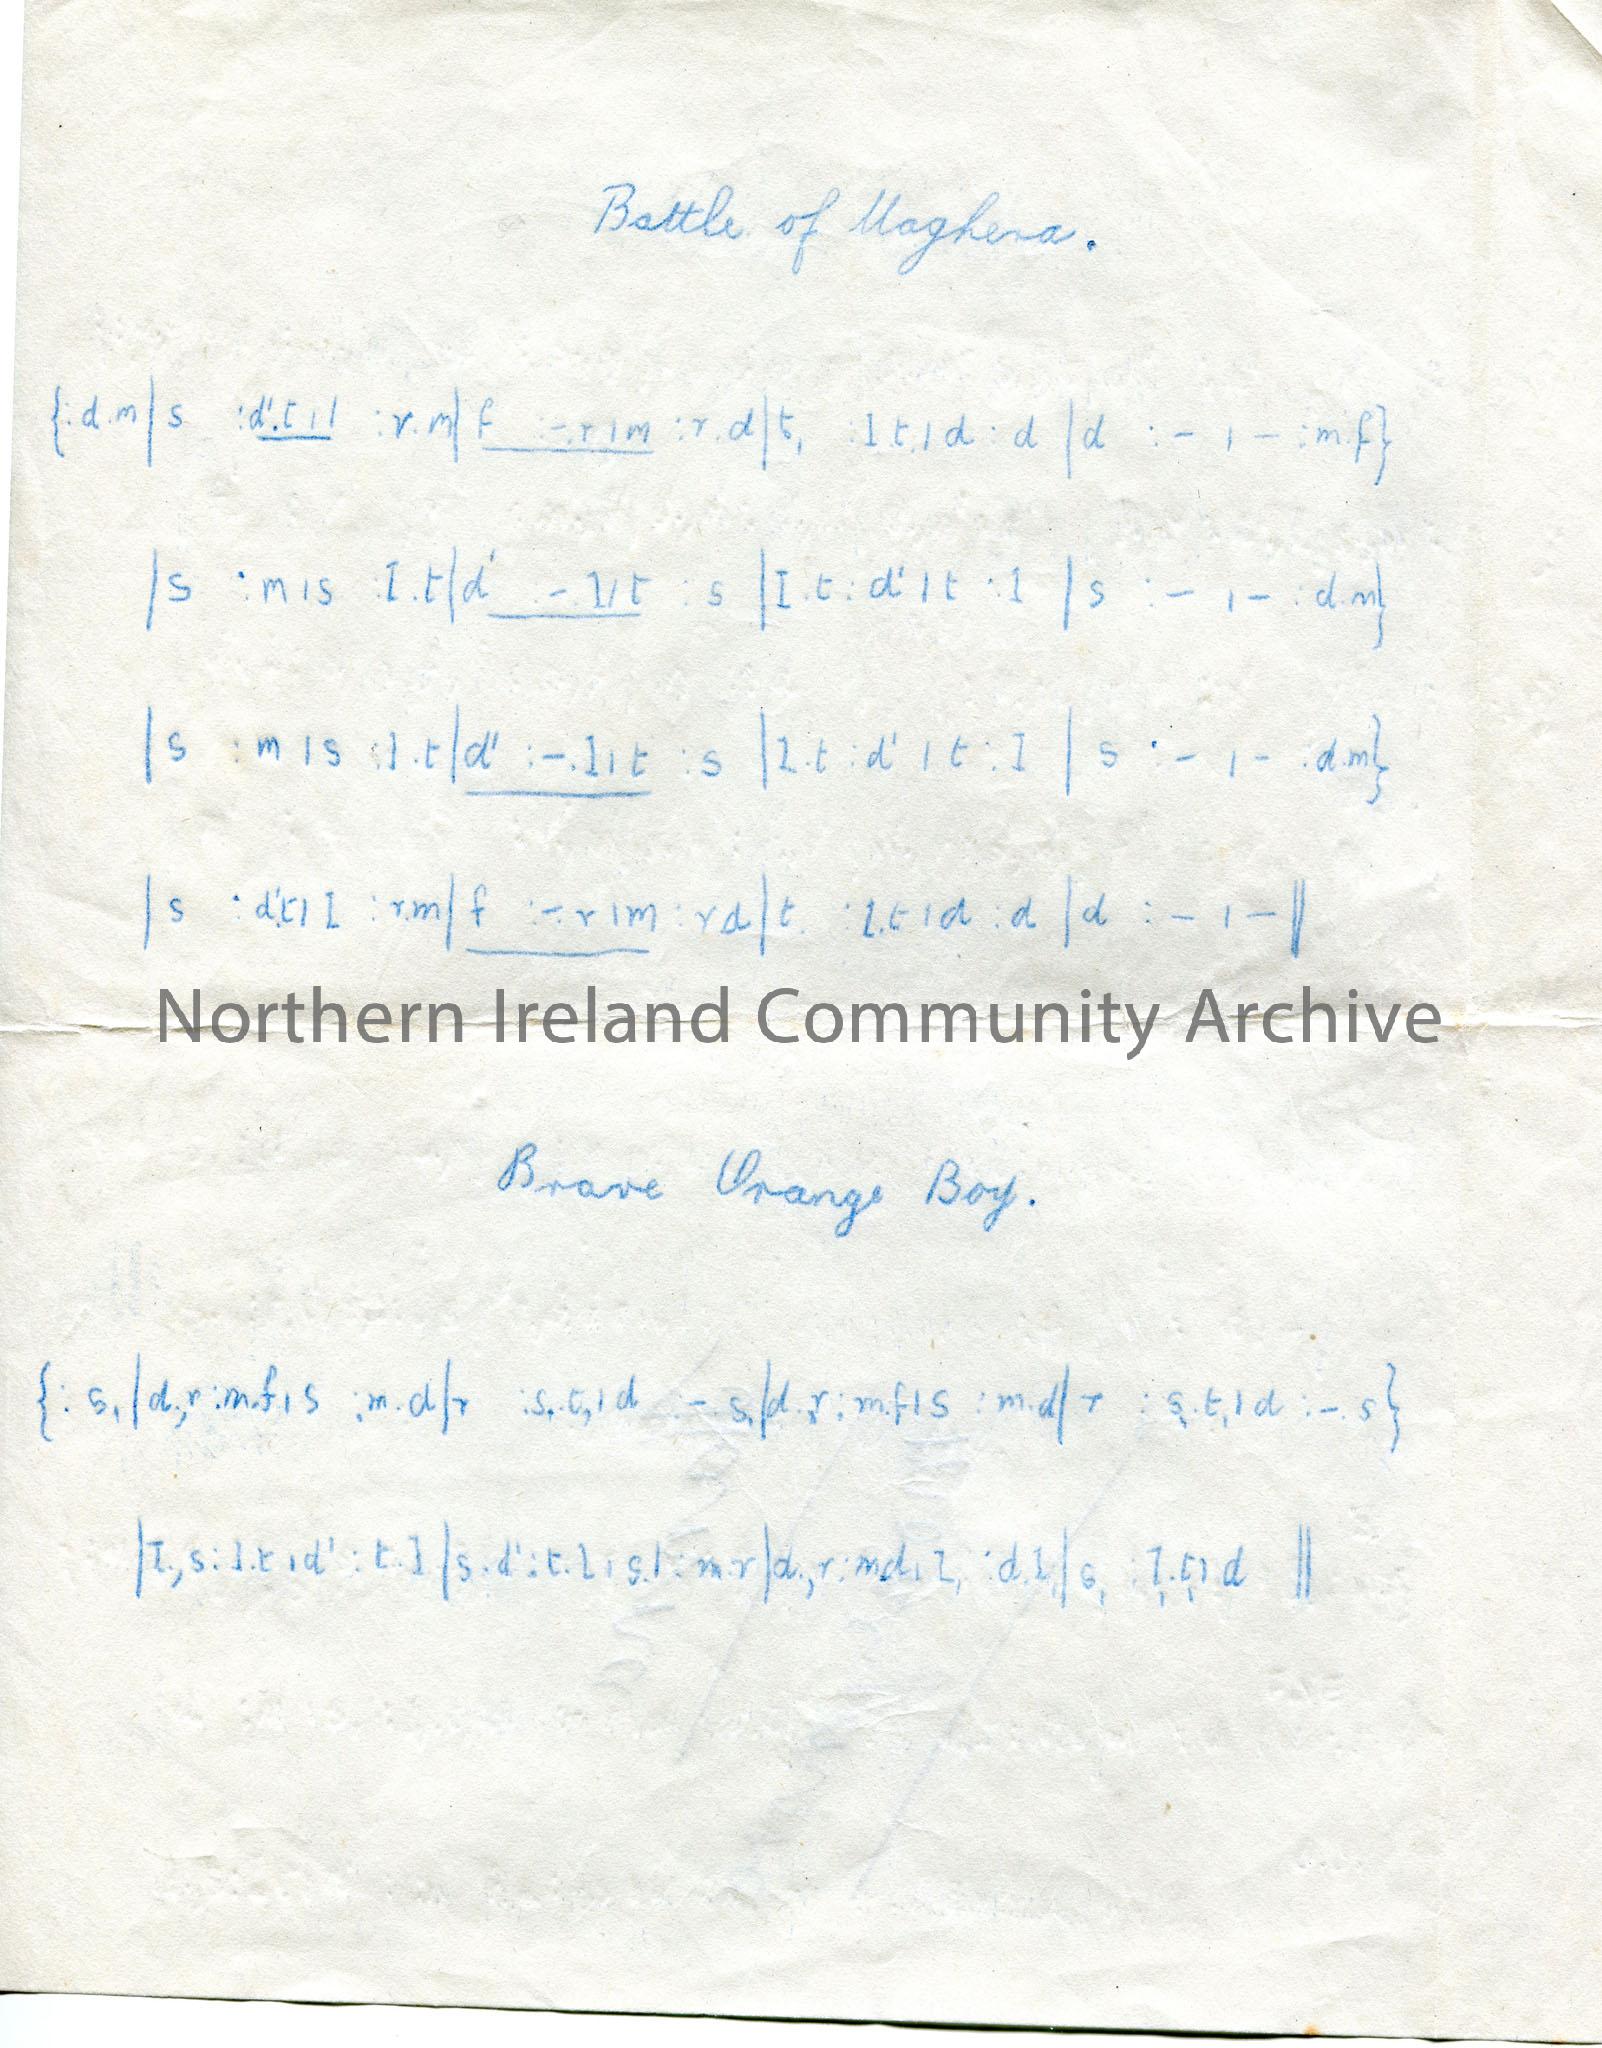 Battle of Maghera.
{:d.m|s :d'.t,l :r.m|f :-.r|m :r.d|t, :l.t,|d :d |d :- ,- :m.f}
|s :m|s :l.t|d' -.l|t :s |l.t:d'|t :l |s :- ,- :d.m}
|s :m|s :l.t|d' :-.l|t :s |l.t:d'|t:l | s :- ,- :d.m}
|s :d'.t|l :r.m|f :-.r|m :r d|t. :l.t|d :d |d :- ,-||
Northern Ireland Community Archive
Brave Orange Boy.
{: s,|d.,r:m.f|s :m.d|r :s,.t,|d :-. s,|d.,r:m.f|s :m.d|r :s,.t,|d :-. s}
|l.,s:l.t|d':t.l|s.d':t.l|s.l:m.r|d.,r:m.d|l, :d.l,|s, :l,.t,|d ||